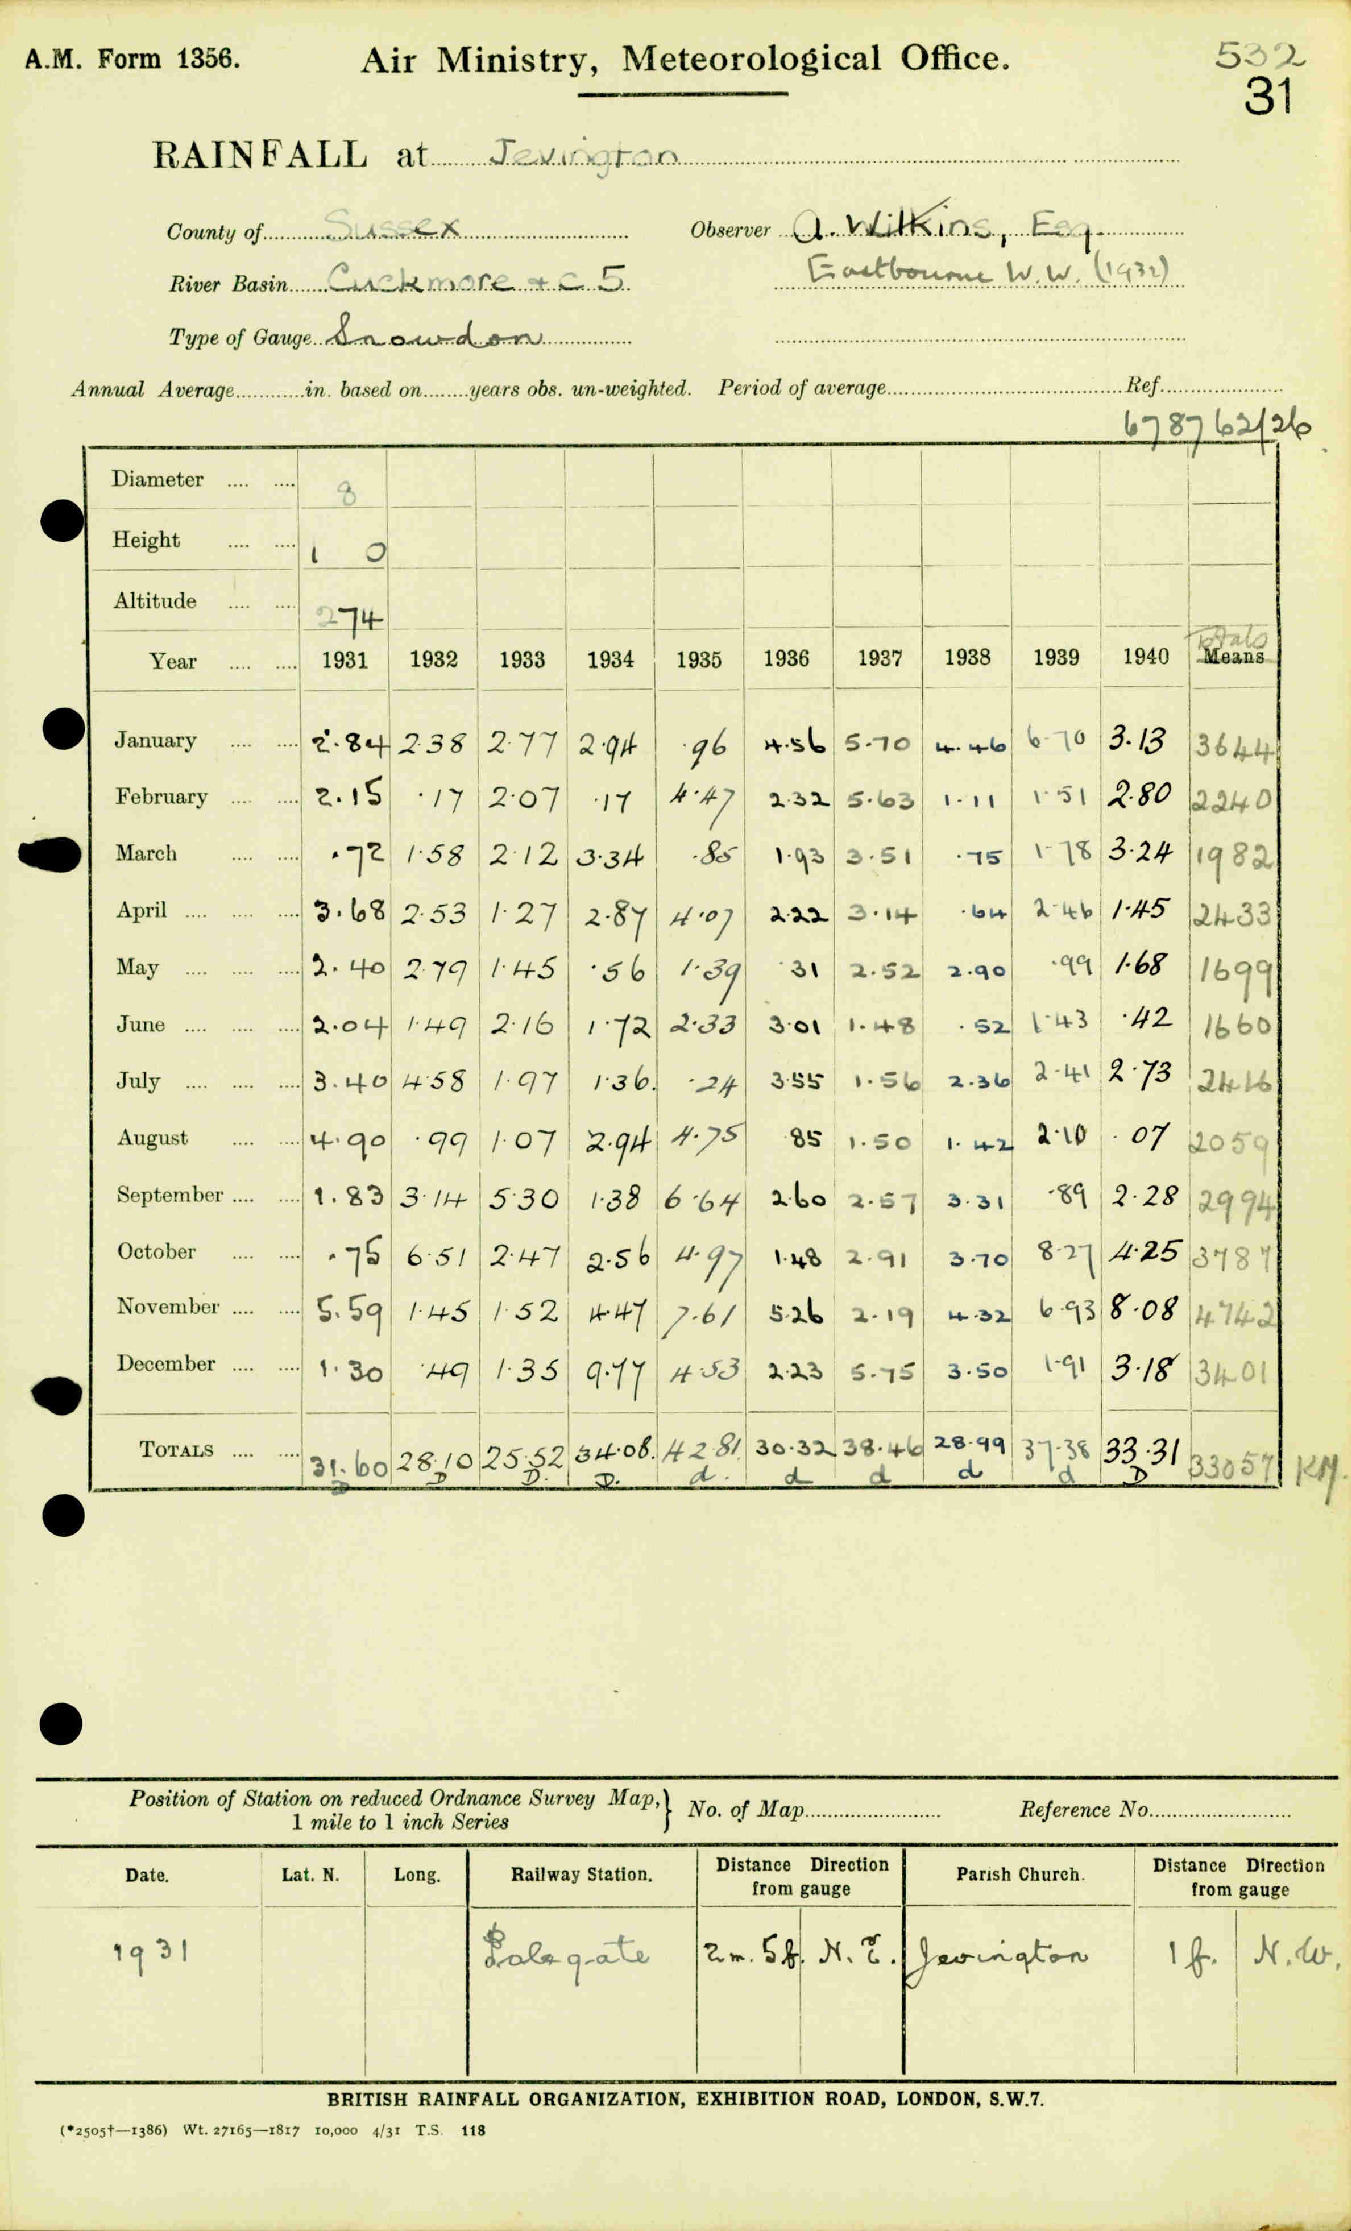 A.M. Form 1356.
Air Ministry, Meteorological Office.
532
31
RAINFALL at Jevington
County of Sussex Observer A. Wilkins, Esq.
River Basin Cuckmore + c 5 Eastbourne W.W. (1932)
Type of Gauge Snowdon
Annual Average in. based on years obs. un-weighted. Period of average Ref.
678762/26
Diameter 8
Height 1 0
Altitude 274
Totals
Year 1931 1932 1933 1934 1935 1936 1937 1938 1939 1940 Means
January 2.84 2.38 2.77 2.94 .96 4.56 5.70 4.46 6.70 3.13 3644
February 2.15 .17 2.07 .17 4.47 2.32 5.63 1.11 1.51 2.80 2240
March .72 1.58 2.12 3.34 .85 1.93 3.51 .75 1.78 3.24 1982
April 3.68 2.53 1.27 2.87 4.07 2.22 3.14 .64 2.46 1.45 2433
May 2.40 2.79 1.45 .56 1.39 .31 2.52 2.90 .99 1.68 1699
June 2.04 1.49 2.16 1.72 2.33 3.01 1.48 .52 1.43 .42 1660
July 3.40 4.58 1.97 1.36 .24 3.55 1.56 2.36 2.41 2.73 2416
August 4.90 .99 1.07 2.94 4.75 85 1.50 1.42 2.10 .07 2059
September 1.83 3.14 5.30 1.38 6.64 2.60 2.57 3.31 .89 2.28 2994
October .75 6.51 2.47 2.56 4.97 1.48 2.91 3.70 8.27 4.25 3787
November 5.59 1.45 1.52 4.47 7.61 5.26 2.19 4.32 6.93 8.08 4742
December 1.30 .49 1.35 9.77 4.53 2.23 5.75 3.50 1.91 3.18 3401
TOTALS 31.60 28.10 25.52 34.08 42.81 30.32 38.46 28.99 37.38 33.31 33057 KM.
D D D. D. d. d d d d D
Position of Station on reduced Ordnance Survey Map, } No. of Map Reference No.
1 mile to 1 inch Series
Date. Lat. N. Long. Railway Station. Distance Direction Parish Church. Distance Direction
from gauge from gauge
1931 Polegate 2m. 5f. N.E. Jevington 1f. N.W.
BRITISH RAINFALL ORGANIZATION, EXHIBITION ROAD, LONDON, S.W.7.
(*2505†—1386) Wt. 27165—1817 10,000 4/31 T.S. 118